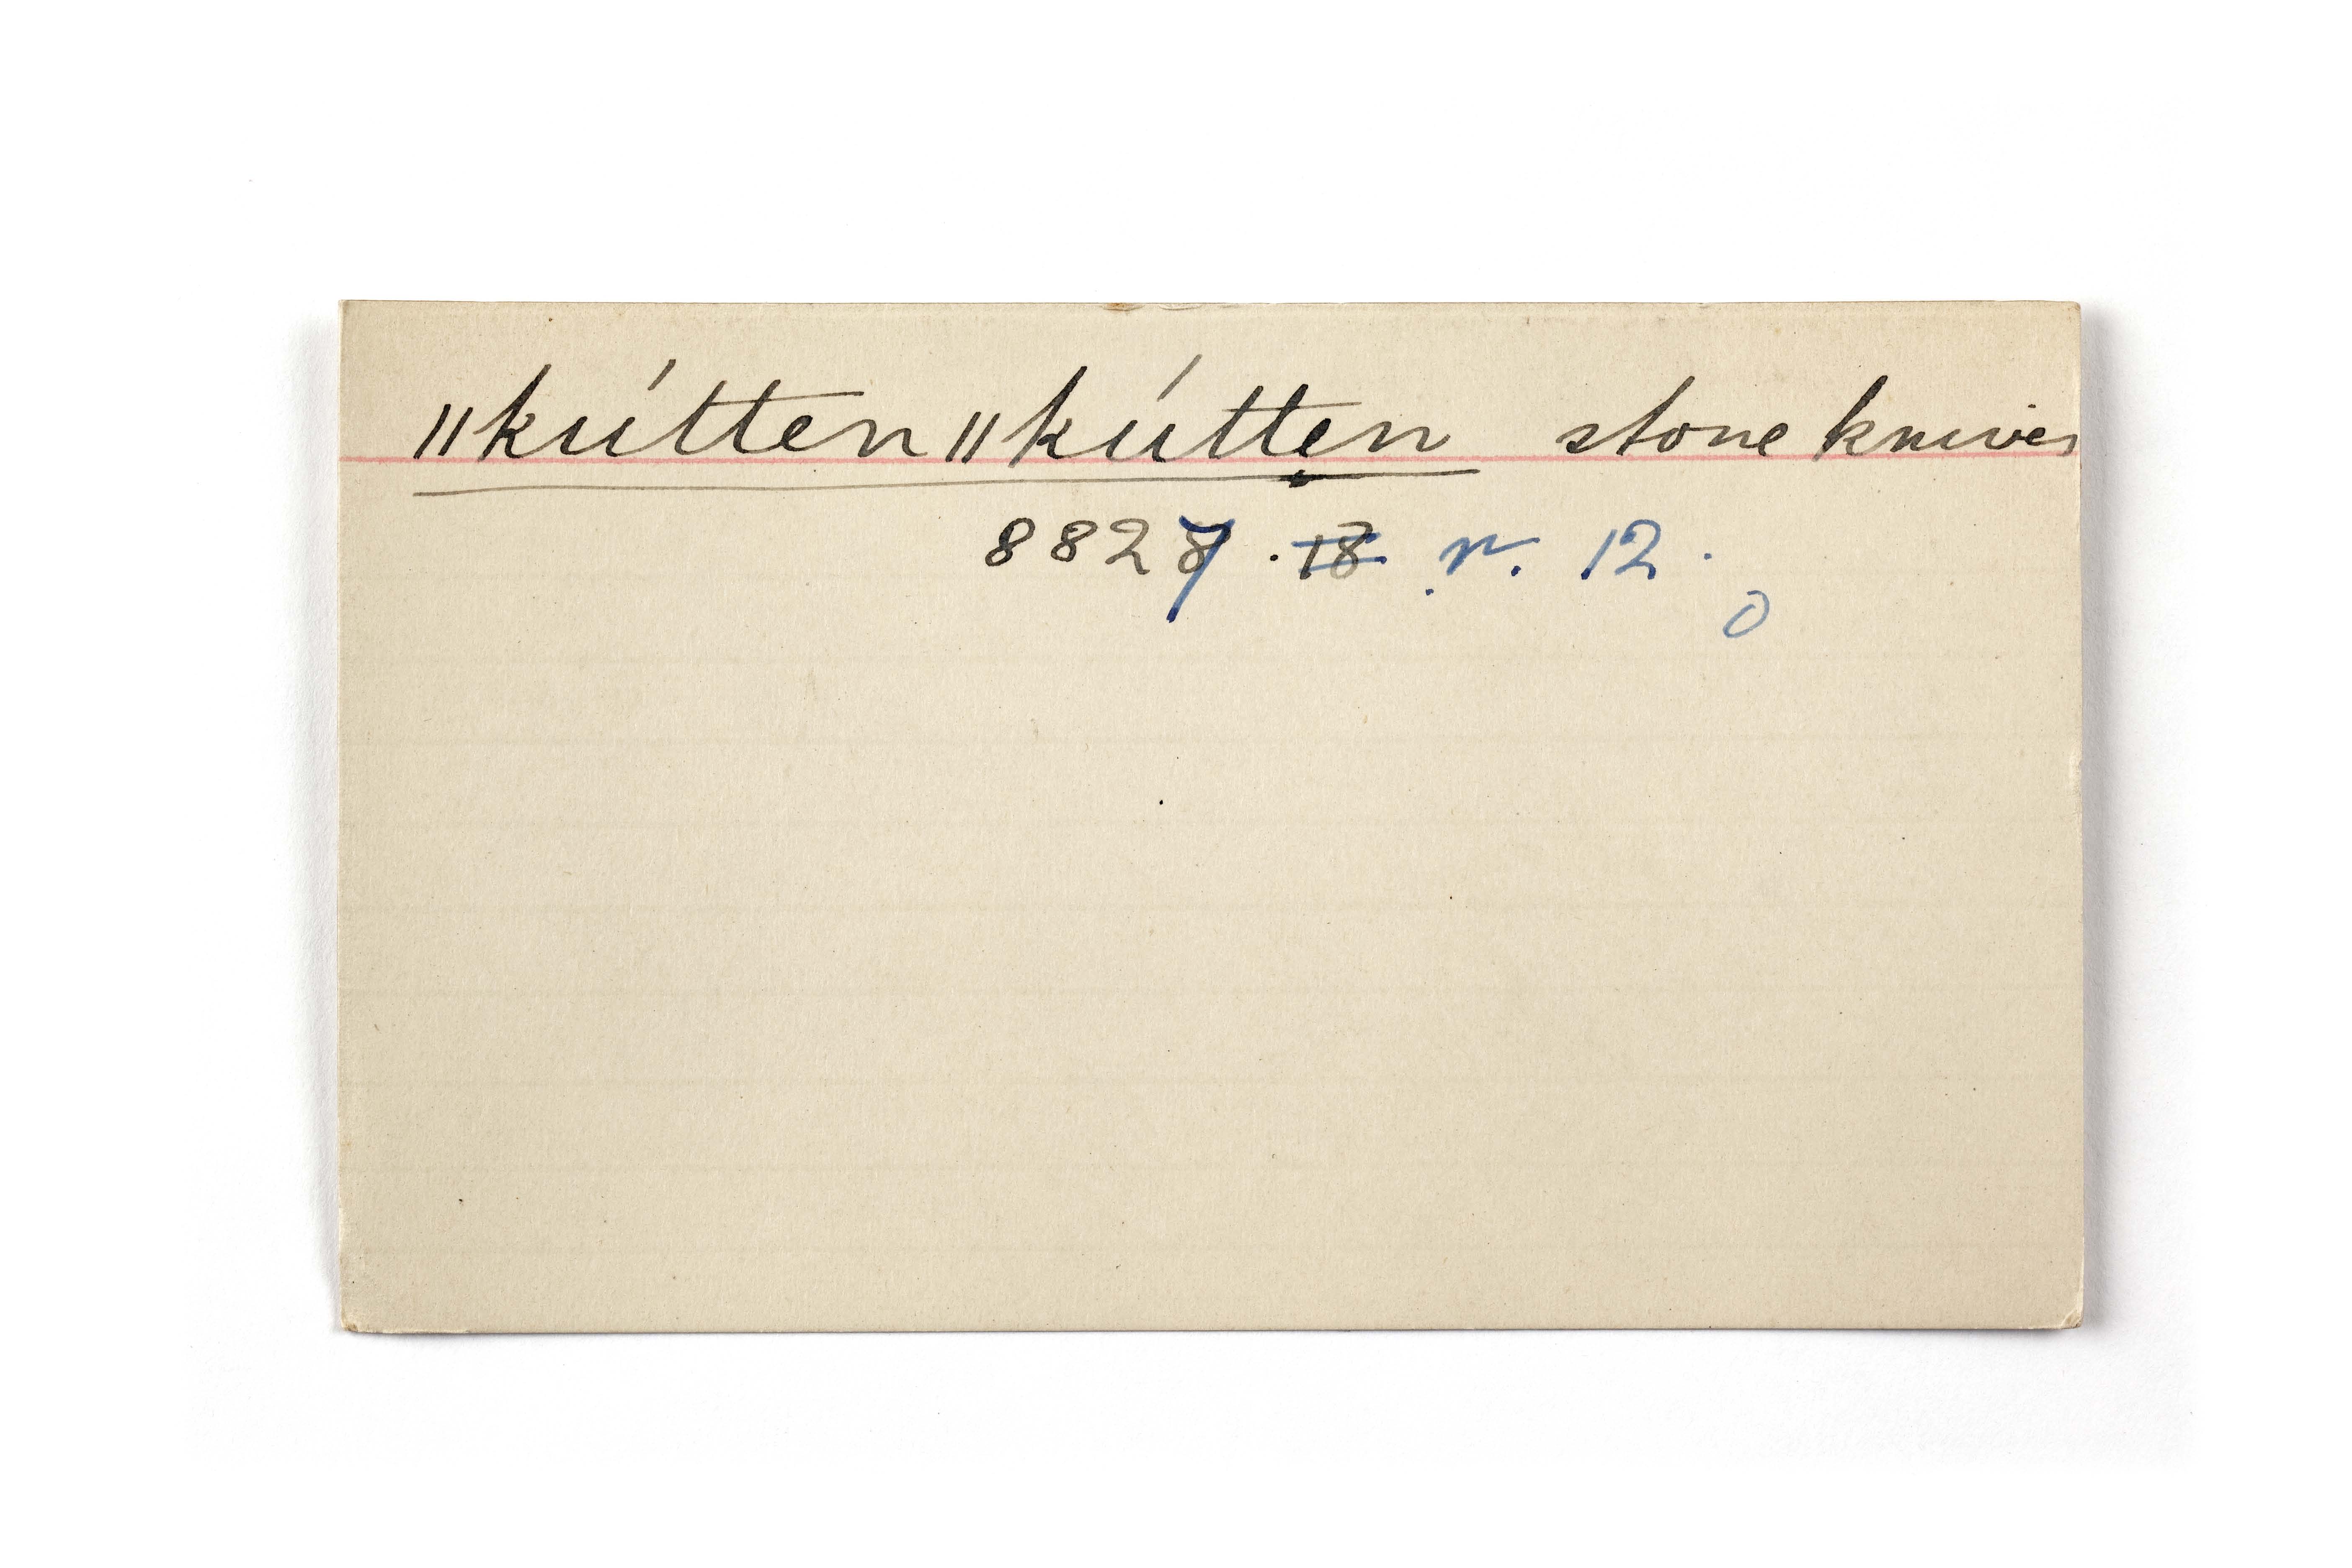 ǁkúttenǁkútten stone knives
8827 . 18 r. 12.
0